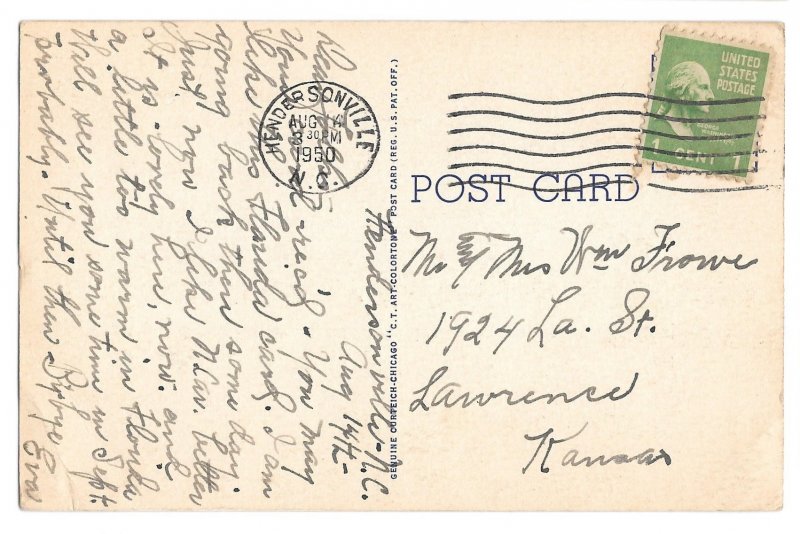 Hendersonville - N.C.
Aug 14th -
Dear
Your card rec'd. You may
like this Florida card. I am
going back there some day.
Just now I like N. Car. better
It is lovely here, now. and
a little too warm in Florida
Will see you some time in Sept.
probably. Until then By bye
Eva
GENUINE CURTEICH-CHICAGO "C.T. ART-COLORTONE" POST CARD (REG. U.S. PAT. OFF.)
HENDERSONVILLE
AUG 14
3 30 PM
1950
N.C.
UNITED
STATES
POSTAGE
1 CENT 1
POST CARD
Mr & Mrs Wm Frowe
1924 La. St.
Lawrence
Kansas